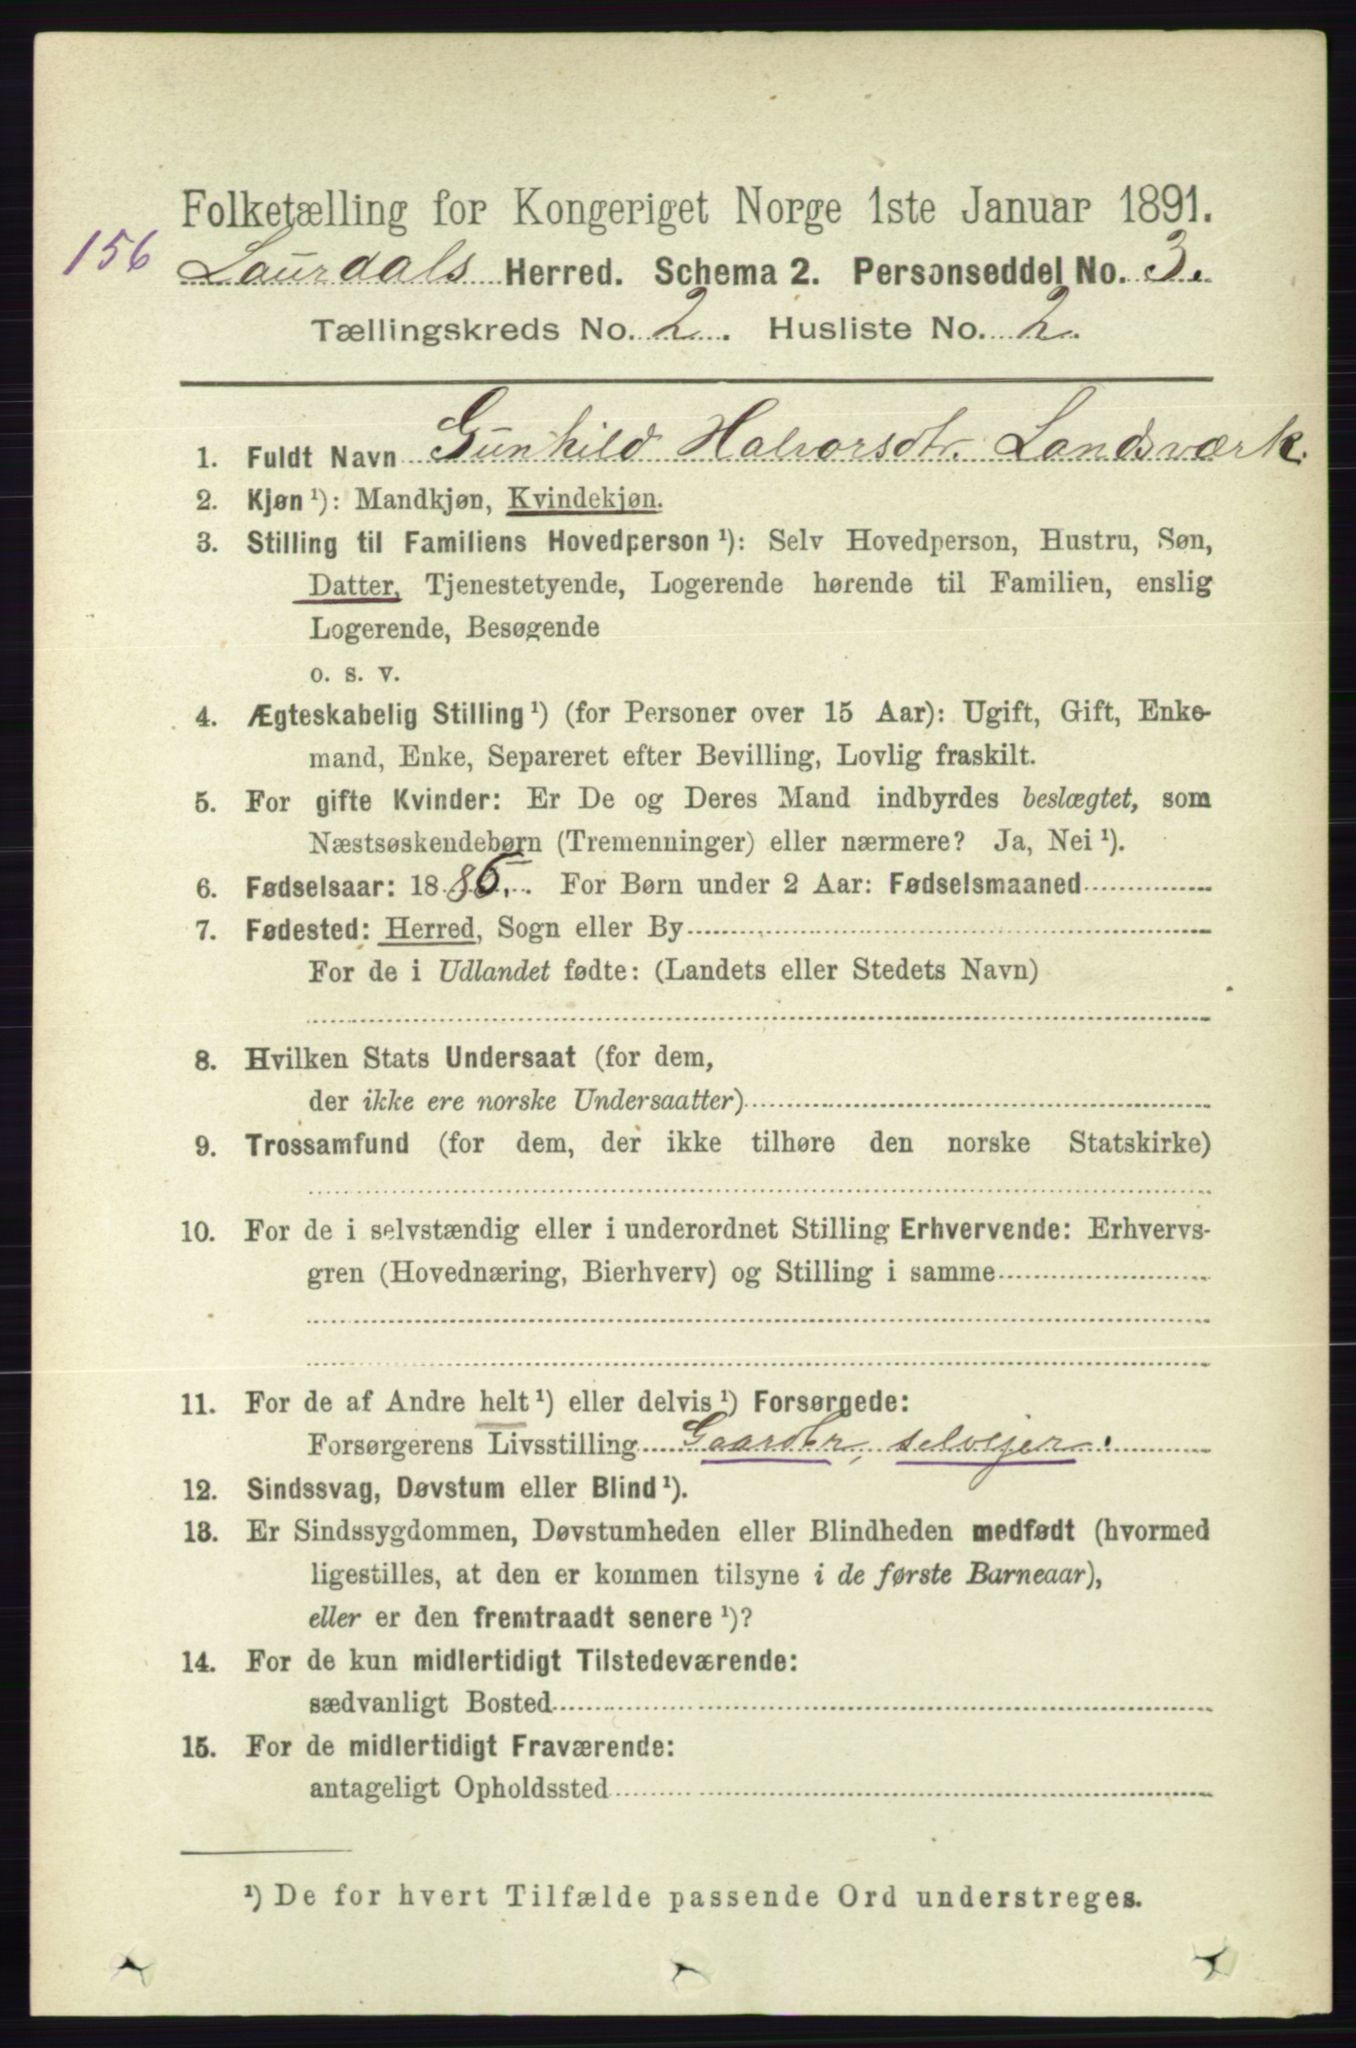 Folketælling for Kongeriget Norge 1ste Januar 1891.
156
Laurdals Herred. Schema 2. Personseddel No. 3.
Tællingskreds No. 2. Husliste No. 2.
1. Fuldt Navn Gunhild Halvorsdtr. Landsværk.
2. Kjøn ¹): Mandkjøn, Kvindekjøn.
3. Stilling til Familiens Hovedperson ¹): Selv Hovedperson, Hustru, Søn,
Datter, Tjenestetyende, Logerende hørende til Familien, enslig
Logerende, Besøgende
o. s. v.
4. Ægteskabelig Stilling ¹) (for Personer over 15 Aar): Ugift, Gift, Enke-
mand, Enke, Separeret efter Bevilling, Lovlig fraskilt.
5. For gifte Kvinder: Er De og Deres Mand indbyrdes beslægtet, som
Næstsøskendebørn (Tremenninger) eller nærmere? Ja, Nei ¹).
6. Fødselsaar: 1886. For Børn under 2 Aar: Fødselsmaaned
7. Fødested: Herred, Sogn eller By
For de i Udlandet fødte: (Landets eller Stedets Navn)
8. Hvilken Stats Undersaat (for dem,
der ikke ere norske Undersaatter)
9. Trossamfund (for dem, der ikke tilhøre den norske Statskirke)
10. For de i selvstændig eller i underordnet Stilling Erhvervende: Erhvervs-
gren (Hovednæring, Bierhverv) og Stilling i samme
11. For de af Andre helt ¹) eller delvis ¹) Forsørgede:
Forsørgerens Livsstilling Gaardbr, selvejer.
12. Sindssvag, Døvstum eller Blind ¹).
13. Er Sindssygdommen, Døvstumheden eller Blindheden medfødt (hvormed
ligestilles, at den er kommen tilsyne i de første Barneaar),
eller er den fremtraadt senere ¹)?
14. For de kun midlertidigt Tilstedeværende:
sædvanligt Bosted
15. For de midlertidigt Fraværende:
antageligt Opholdssted
¹) De for hvert Tilfælde passende Ord understreges.